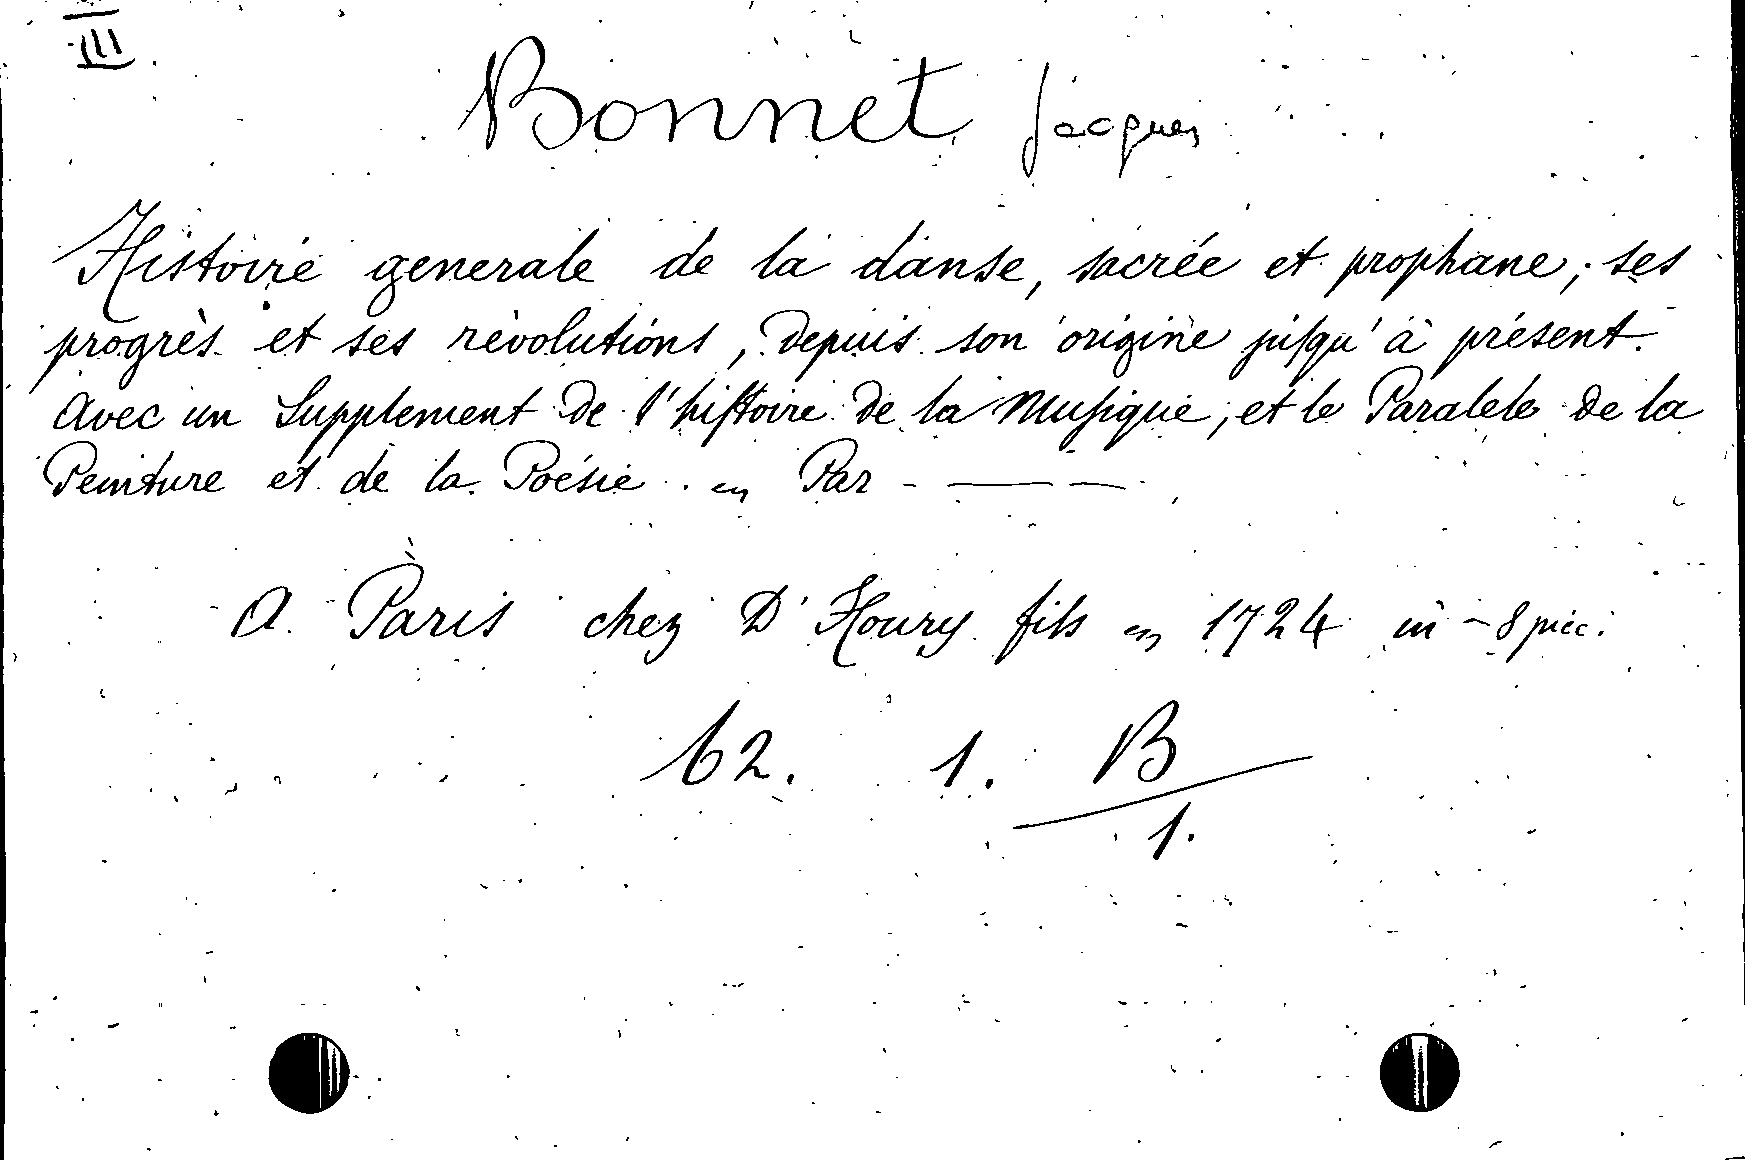 III
Bonnet Jacques
Histoire generale de la danse, sacrée et prophane; ses
progrès et ses révolutions, depuis son origine juſqu'à présent.
Avec un Supplement de l'hiſtoire de la Muſique, et le Paralele de la
Peinture et de la Poésie. Par - — —
A Paris chez D'Houry fils 1724 in-8 picc.
62. 1. B
1.